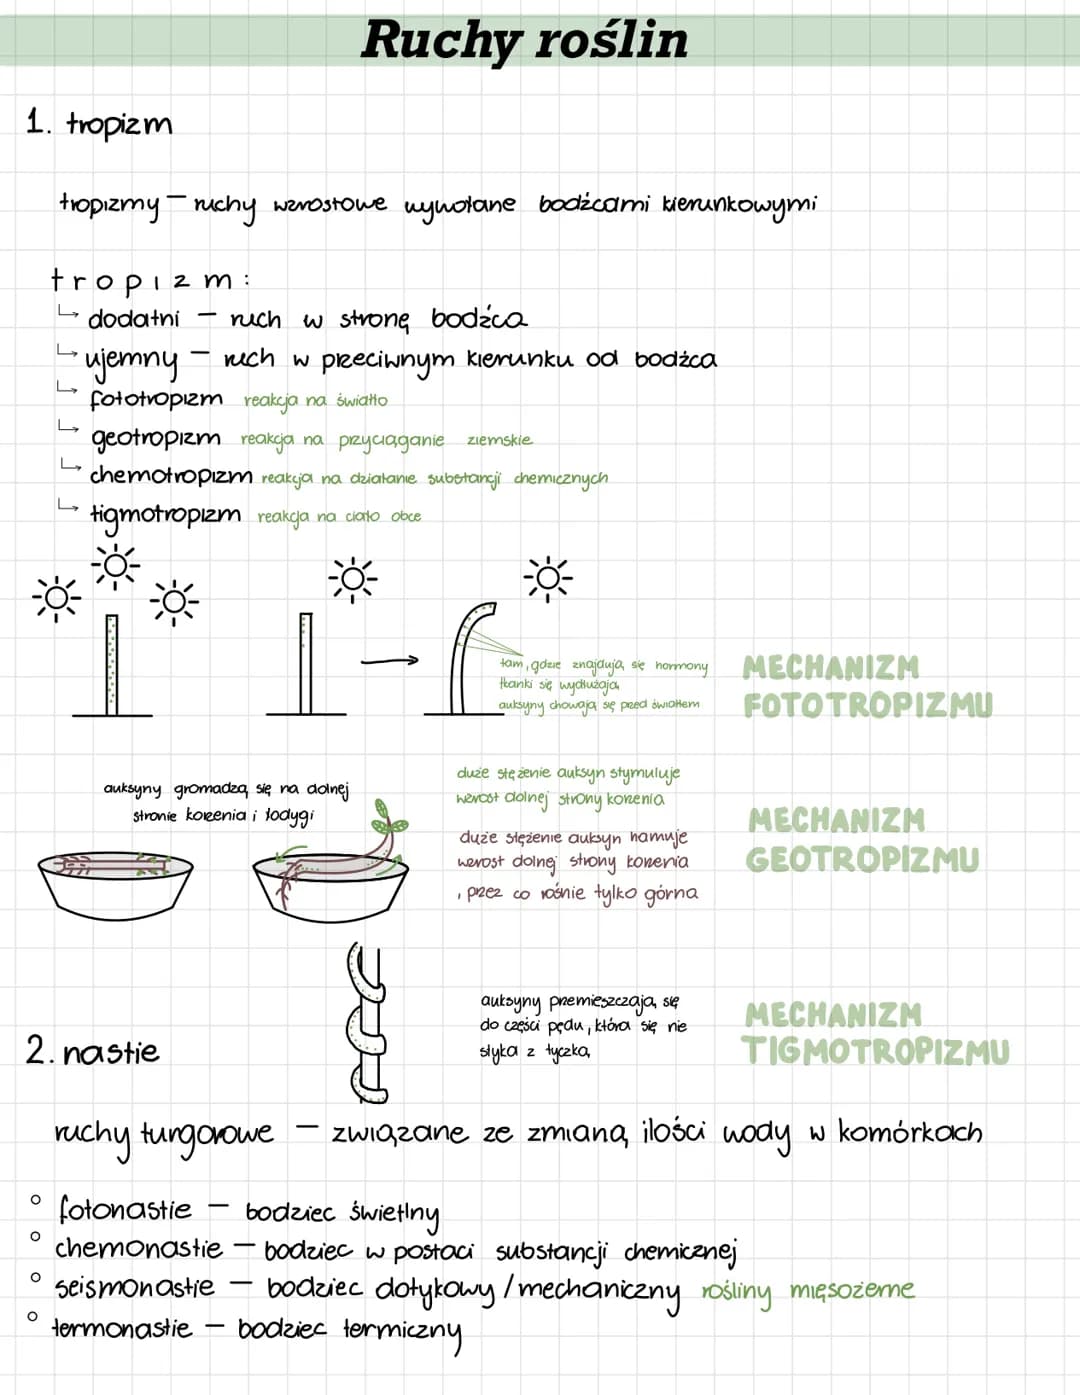 Ruchy roślin
1. tropizm
tropizmy – ruchy wzrostowe wywołane bodźcami kierunkowymi
tropizm:
↳ dodatni – ruch w stronę bodźca
↳ ujemny – ruch w przeciwnym kierunku od bodźca
↳ fototropizm reakcja na światło
↳ geotropizm reakcja na przyciąganie ziemskie
↳ chemotropizm reakcja na działanie substancji chemicznych
↳ tigmotropizm reakcja na ciało obce
tam, gdzie znajdują się hormony
tkanki się wydłużają
auksyny chowają się przed światłem
MECHANIZM
FOTOTROPIZMU
auksyny gromadzą się na dolnej
stronie korzenia i łodygi
duże stężenie auksyn stymuluje
wzrost dolnej strony korzenia
duże stężenie auksyn hamuje
wzrost dolnej strony korzenia
, przez co rośnie tylko górna
MECHANIZM
GEOTROPIZMU
auksyny przemieszczają się
do części pędu, która się nie
styka z tyczką
MECHANIZM
TIGMOTROPIZMU
2. nastie
ruchy turgorowe – związane ze zmianą ilości wody w komórkach
° fotonastie – bodziec świetlny
° chemonastie – bodziec w postaci substancji chemicznej
° seismonastie – bodziec dotykowy / mechaniczny rośliny mięsożerne
° termonastie – bodziec termiczny